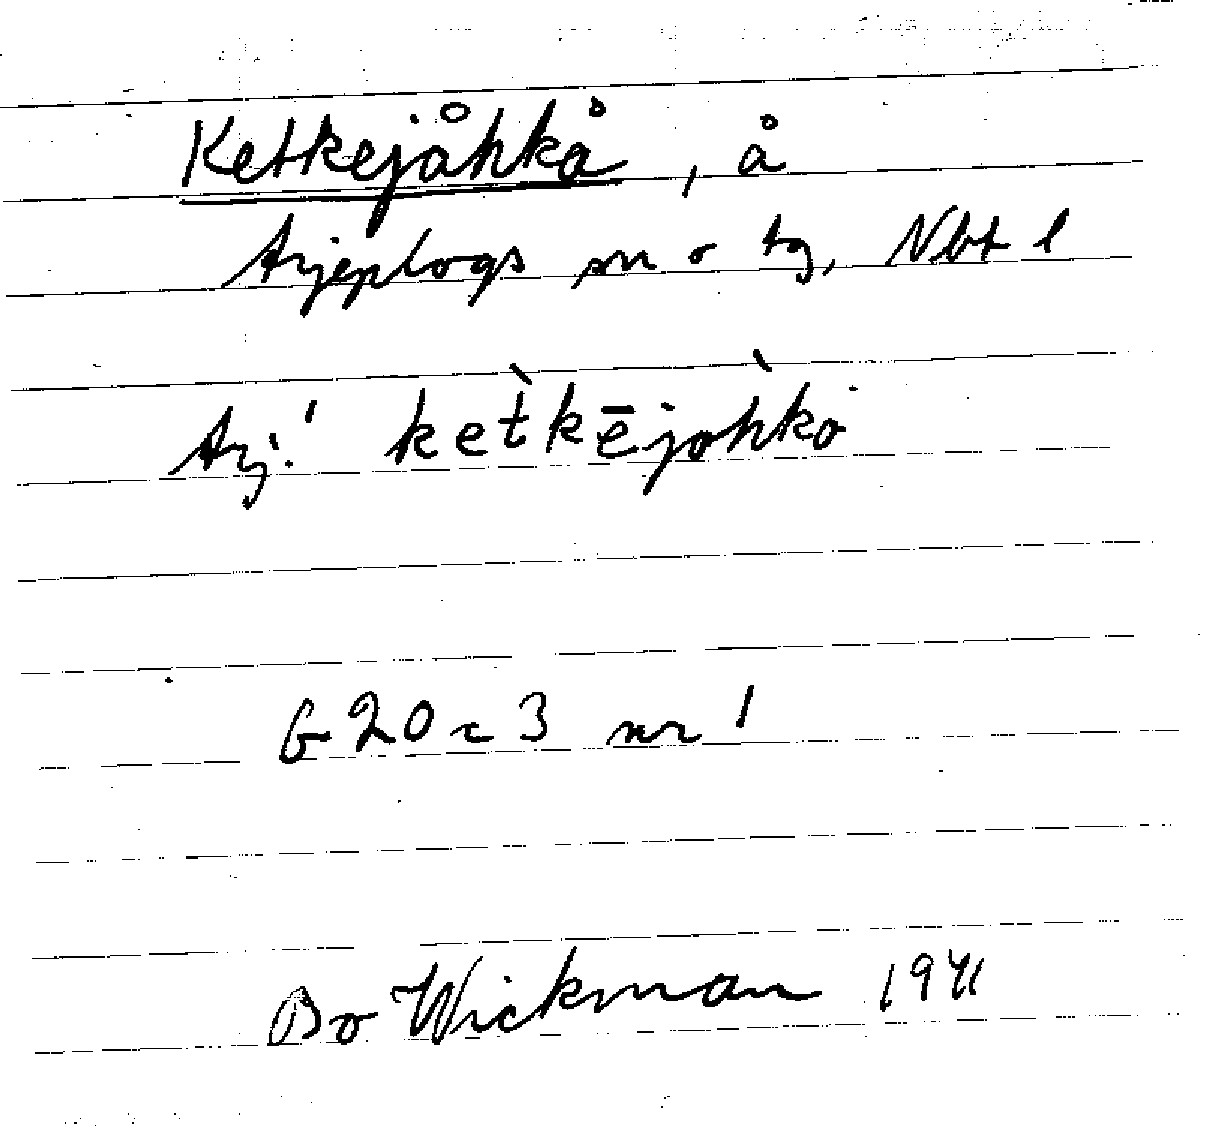 Ketkejåhkå, å
Arjeplogs sn o tg, Nbt l
Arj: ' ket̀kējoh̀kȯ
G 20 c 3 nr 1
Bo Wickman 1941